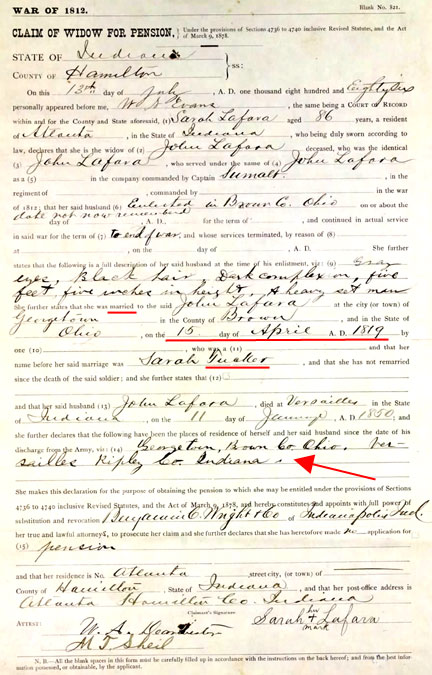 WAR OF 1812. Blank No. 821.
CLAIM OF WIDOW FOR PENSION, Under the provisions of Sections 4736 to 4740 inclusive Revised Statutes, and the Act of March 9, 1878.
STATE OF Indiana
COUNTY OF Hamilton ss:
On this 13th day of July, A. D. one thousand eight hundred and Eighty six
personally appeared before me, W. N. Evans, the same being a COURT OF RECORD
within and for the County and State aforesaid, (1) Sarah Lafara aged 86 years, a resident
of Atlanta, in the State of Indiana, who being duly sworn according to
law, declares that she is the widow of (2) John Lafara deceased, who was the identical
(3) John Lafara, who served under the name of (4) John Lafara
as a (5) in the company commanded by Captain Sumalt, in the
regiment of, commanded by in the war
of 1812; that her said husband (6) Enlisted in Brown Co. Ohio on or about the
date not now remembered day of, A. D., for the term of, and continued in actual service
in said war for the term of (7) to end of war, and whose services terminated, by reason of (8)
at, on the day of, A. D. She further
states that the following is a full description of her said husband at the time of his enlistment, viz: (9) Gray
eyes, Black hair, Dark complexion, five
feet, five inches in height, A heavy set man
She further states that she was married to the said John Lafara at the city (or town) of
Georgetown in the County of Brown, and in the State of
Ohio, on the 15 day of April A. D. 1819 by
one (10), who was a (11) and that her
name before her said marriage was Sarah, and that she has not remarried
since the death of the said soldier; and she further states that (12)
and that her said husband (13) John Lafara, died at Versailles in the State of
Indiana, on the 11 day of January, A. D. 1850, and
she further declares that the following have been the places of residence of herself and her said husband since the date of his
discharge from the Army, viz: (14) Georgetown, Brown Co. Ohio, Ver-
sailles Ripley Co. Indiana.
She makes this declaration for the purpose of obtaining the pension to which she may be entitled under the provisions of Sections
4736 to 4740 inclusive Revised Statutes, and the Act of March 9, 1878, and hereby constitutes and appoints with full power of
substitution and revocation Benjamin C. Wright & Co of Indianapolis Ind.
her true and lawful attorneys, to prosecute her claim and she further declares that she has heretofore made no application for
(15) pension
and that her residence is No. Atlanta street, city, (or town) of
County of Hamilton, State of Indiana, and that her post-office address is
Atlanta Hamilton Co. Indiana
Claimant's Signature
ATTEST: Sarah her + mark Lafara
W. A.
M. T. Sheil
N. B.—All the blank spaces in this form must be carefully filled up in accordance with the instructions on the back hereof; and from the best information possessed, or obtainable, by the applicant.